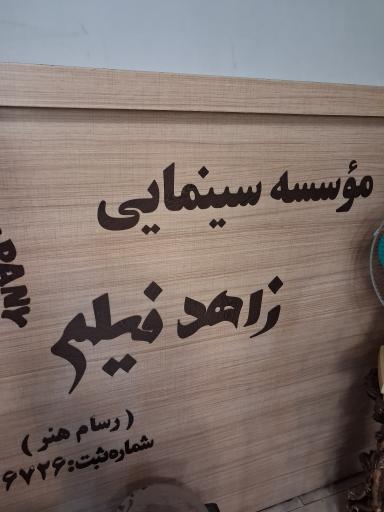 مؤسسه سینمایی
زاهد فیلم
( رسام هنر )
شماره ثبت: ۶۷۲۶
PANY